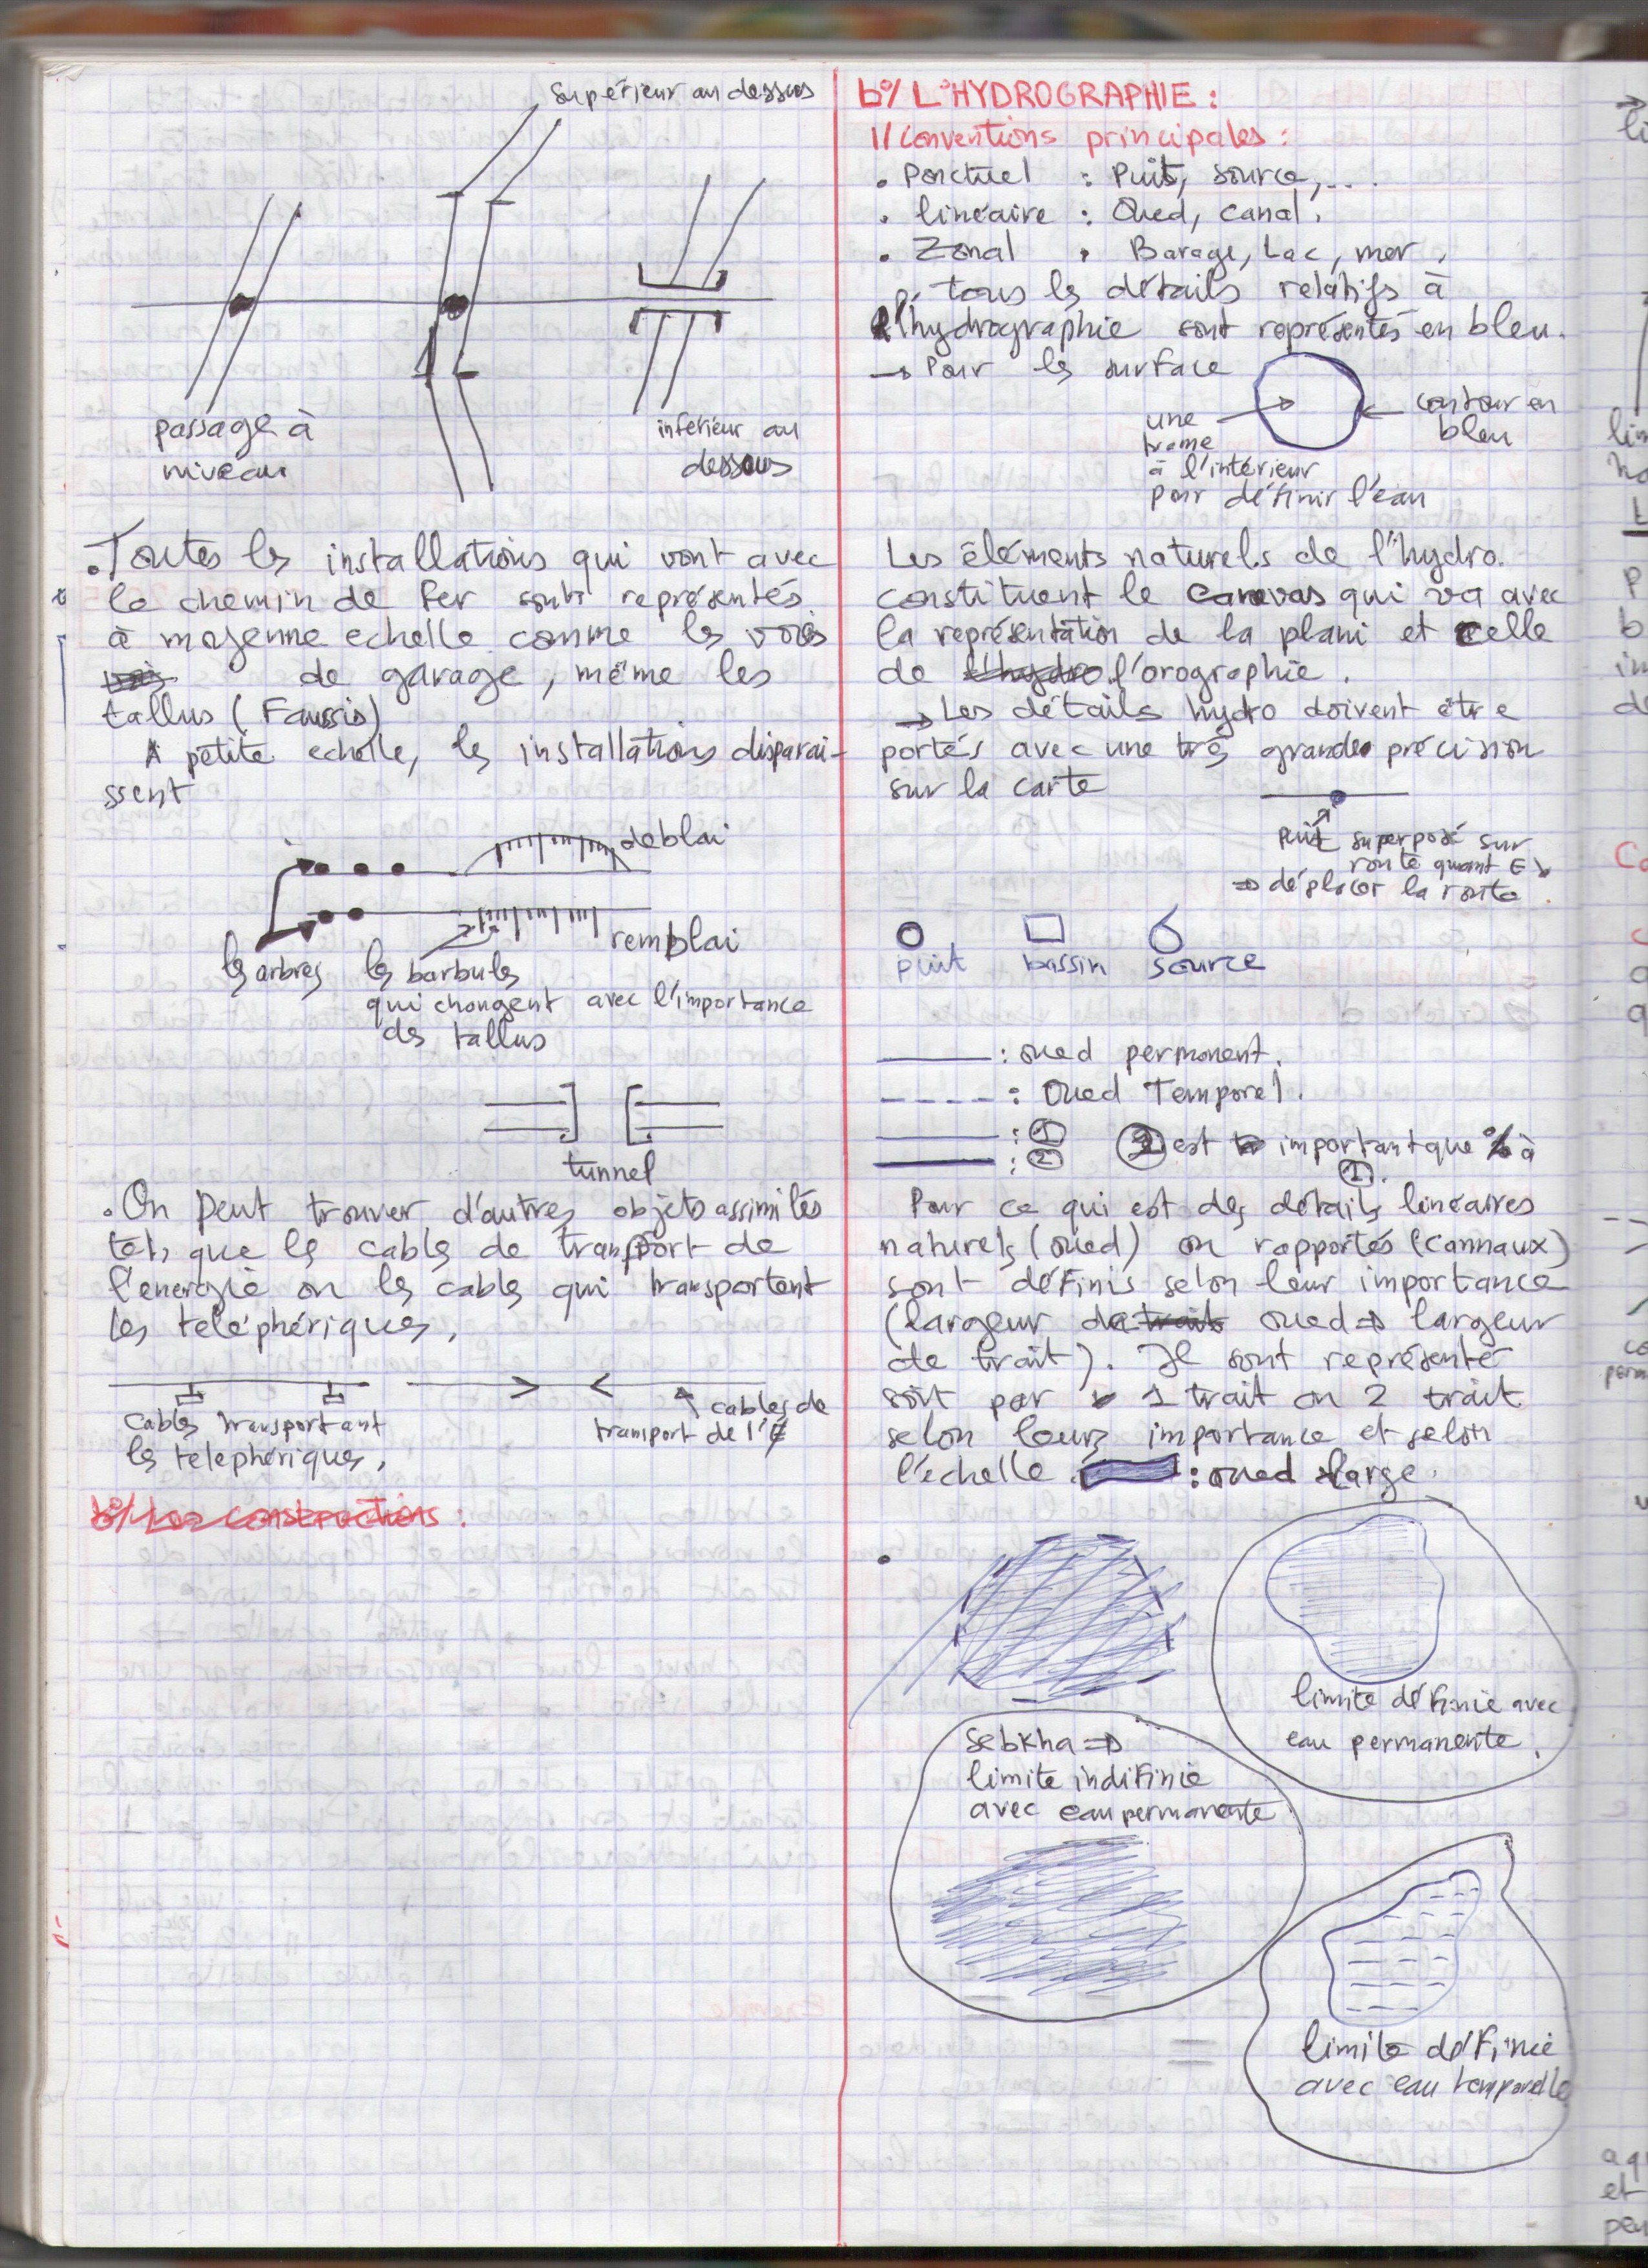 Supérieur au dessus
passage à
niveau
inférieur au
dessous
.Toutes les installations qui vont avec
le chemin de fer sont représentés
à moyenne echelle comme les voies
de garage, même les
tallus (Faussis)
A petite echelle, les installations disparai-
ssent
deblai
remblai
les arbres
les barbules
qui changent avec l'importance
des tallus
tunnel
.On peut trouver d'autres objets assimilés
tels que les cables de transport de
l'energie ou les cables qui transportent
les telephériques.
cables transportant
les telephériques.
cables de
transport de l'E
b°/ Les constructions :
b°/ L'HYDROGRAPHIE :
1/ Conventions principales :
. Ponctuel : Puit, source,...
. linéaire : Oued, canal.
. Zonal : Barage, Lac, mer.
tous les détails relatifs à
l'hydrographie sont représentés en bleu.
→ Pour les surface
une
trame
à l'intérieur
pour définir l'eau
contour en
bleu
Les éléments naturels de l'hydro.
constituent le canevas qui va avec
la représentation de la plani et celle
de l'hydro l'orographie.
→ Les détails hydro doivent être
portés avec une très grande précision
sur la carte
Puit superposé sur
route quant E ↘
⇒ déplacer la route
puit
bassin
source
: oued permanent.
: Oued Temporel.
: ①
: ②
② est important que % à
①.
Pour ce qui est des détails linéaires
naturels (oued) ou rapportés (cannaux)
sont définis selon leur importance
(largeur de trait oued ⇒ largeur
de trait). Il sont représenté
soit par 1 trait ou 2 trait
selon leurs importance et selon
l'échelle. : oued large.
limite définie avec
eau permanente.
sebkha ⇒
limite indifinie
avec eau permanente
limite définie
avec eau temporelle